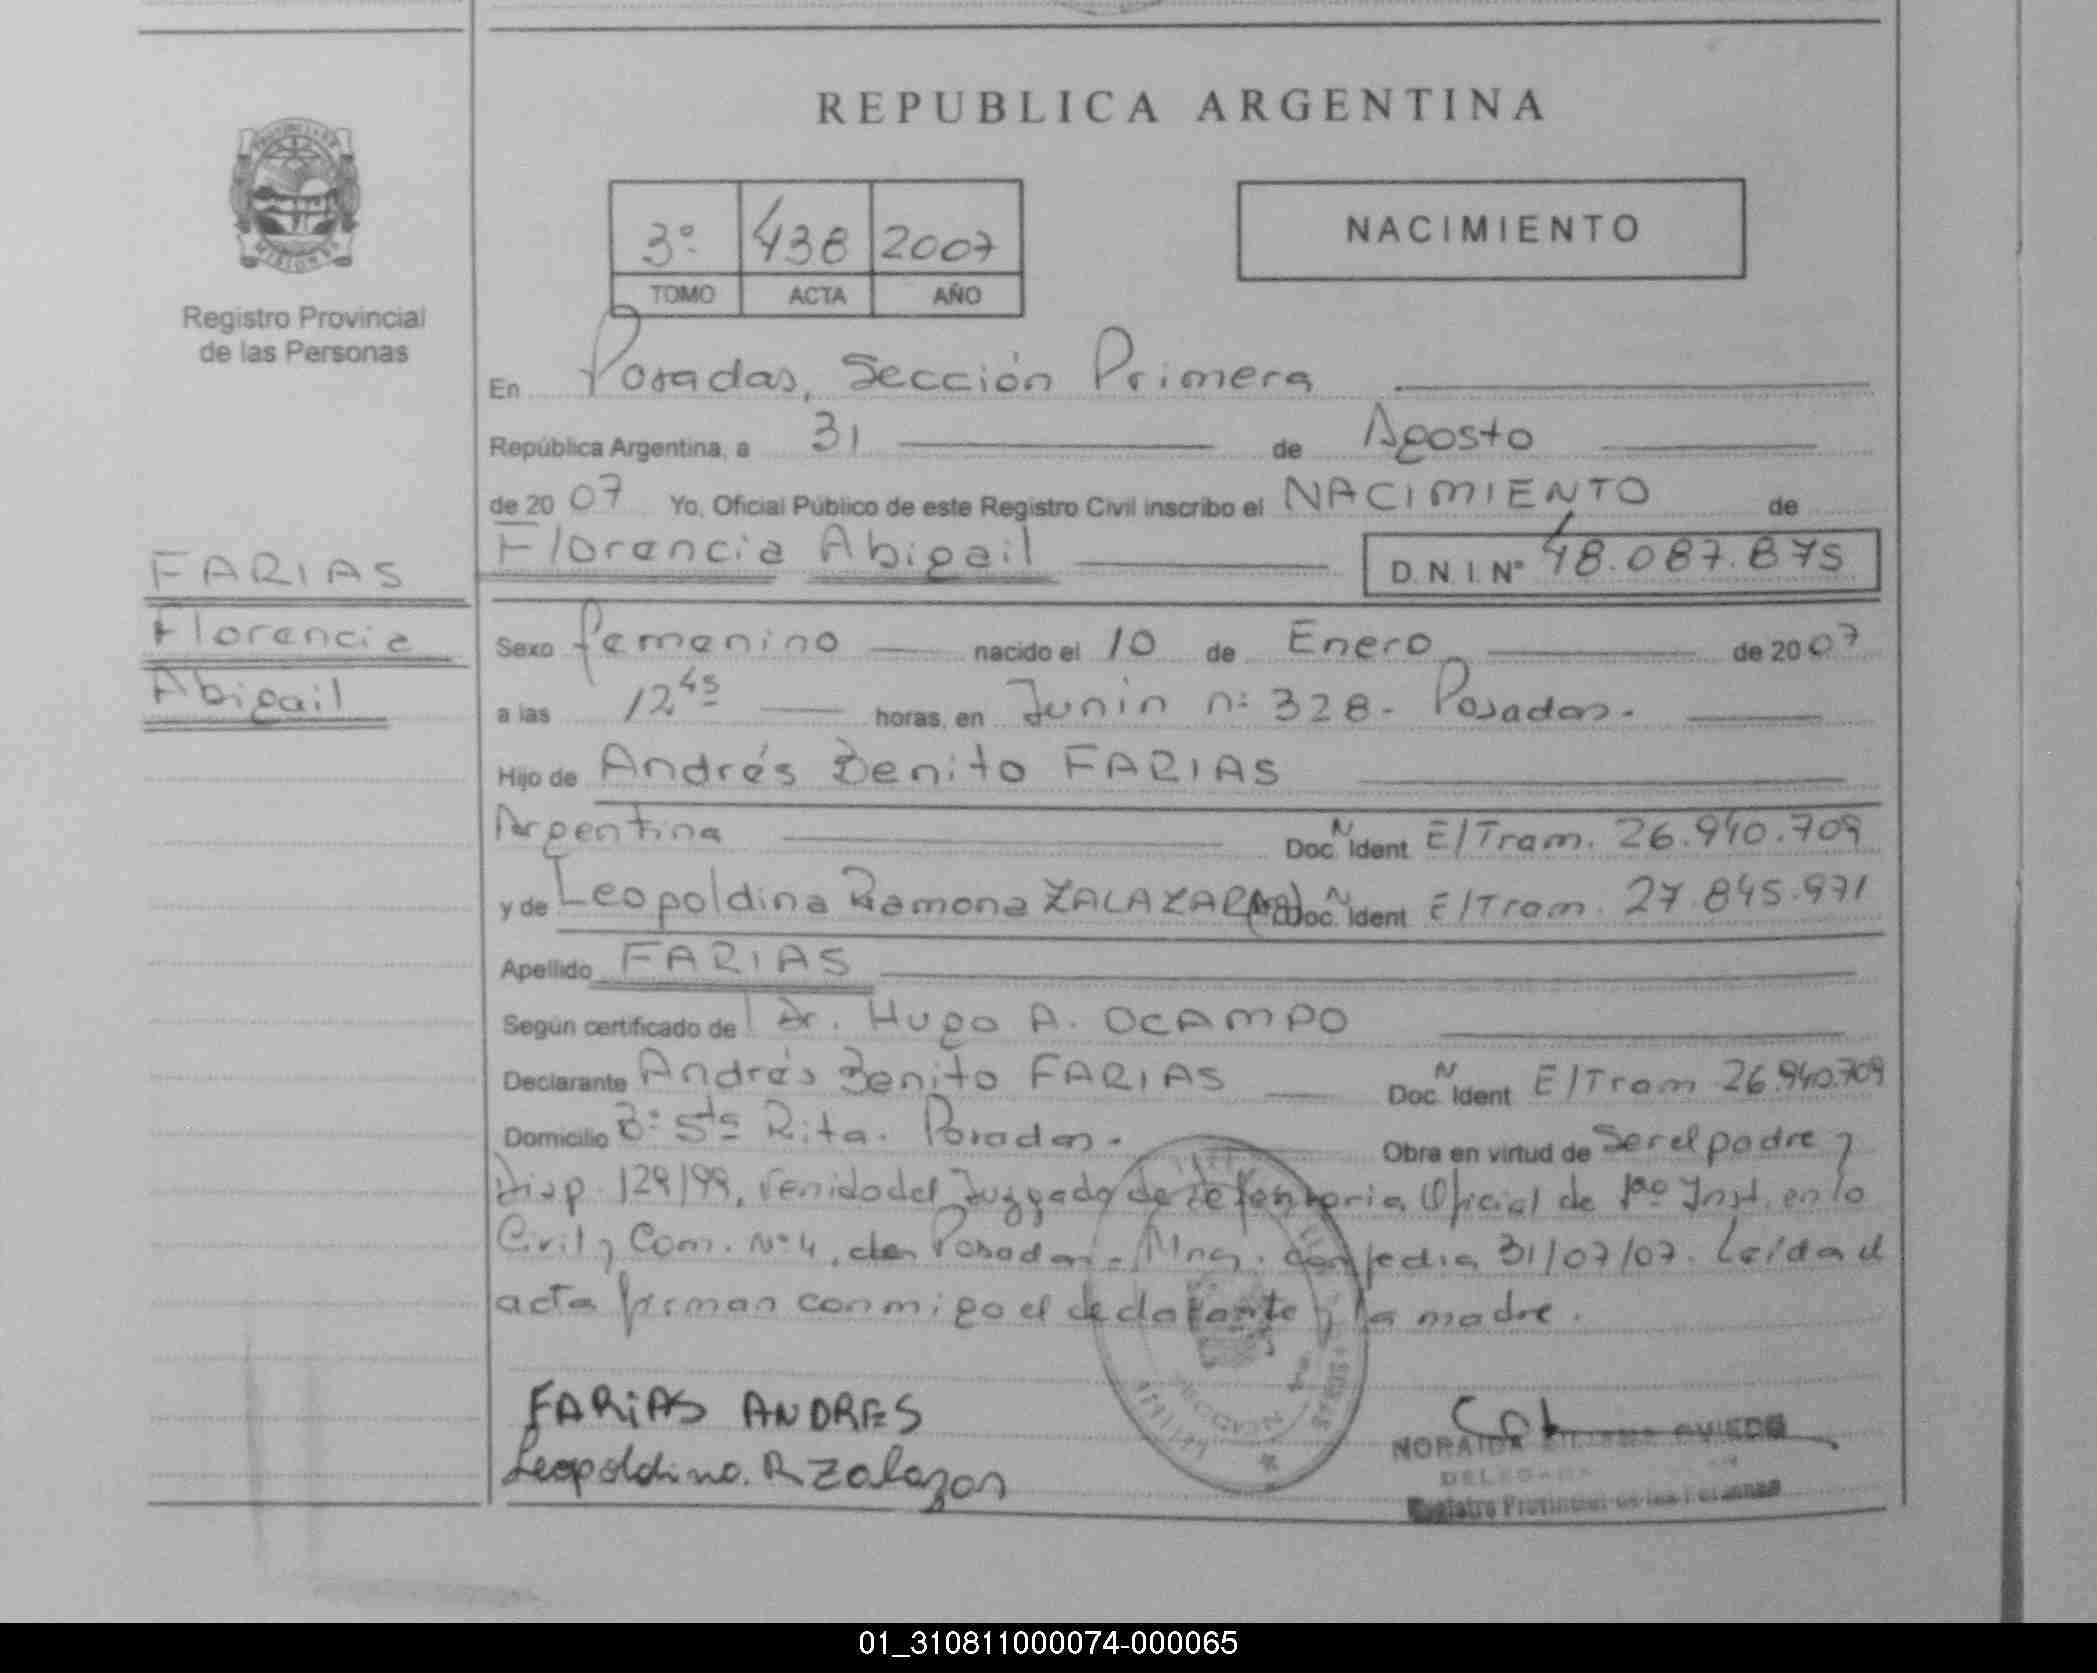 REPUBLICA ARGENTINA
PROVINCIA DE
MISIONES
Registro Provincial
de las Personas
3º 438 2007
TOMO ACTA AÑO
NACIMIENTO
En Posadas, Sección Primera
República Argentina, a 31 de Agosto
de 2007 Yo, Oficial Público de este Registro Civil inscribo el NACIMIENTO de
Florencia Abigail D.N.I. Nº 48.087.875
FARIAS
Florencia
Abigail
Sexo femenino nacido el 10 de Enero de 2007
a las 12,45 horas, en Junin nº 328 - Posadas.
Hijo de Andrés Benito FARIAS
Argentina Doc. N Ident E/Tram. 26.940.709
y de Leopoldina Ramona ZALAZAR Doc. N Ident E/Tram. 27.845.971
Apellido FARIAS
Según certificado de Dr. Hugo A. OCAMPO
Declarante Andrés Benito FARIAS Doc. N Ident E/Tram 26.940.709
Domicilio Bº Sta Rita. Posadas. Obra en virtud de Ser el padre y
Disp. 129/99, venido del Juzgado de Defensoria Oficial de 1ra Inst. en lo
Civil y Com. Nº 4, de Posadas - Mnes. con fecha 31/07/07. Leída el
acta firman conmigo el declarante y la madre.
FARiAS ANDRES
Leopoldina. R Zalazar
NORAIDA OVIEDO
DELEGADA
Registro Provincial de las Personas
01_310811000074-000065